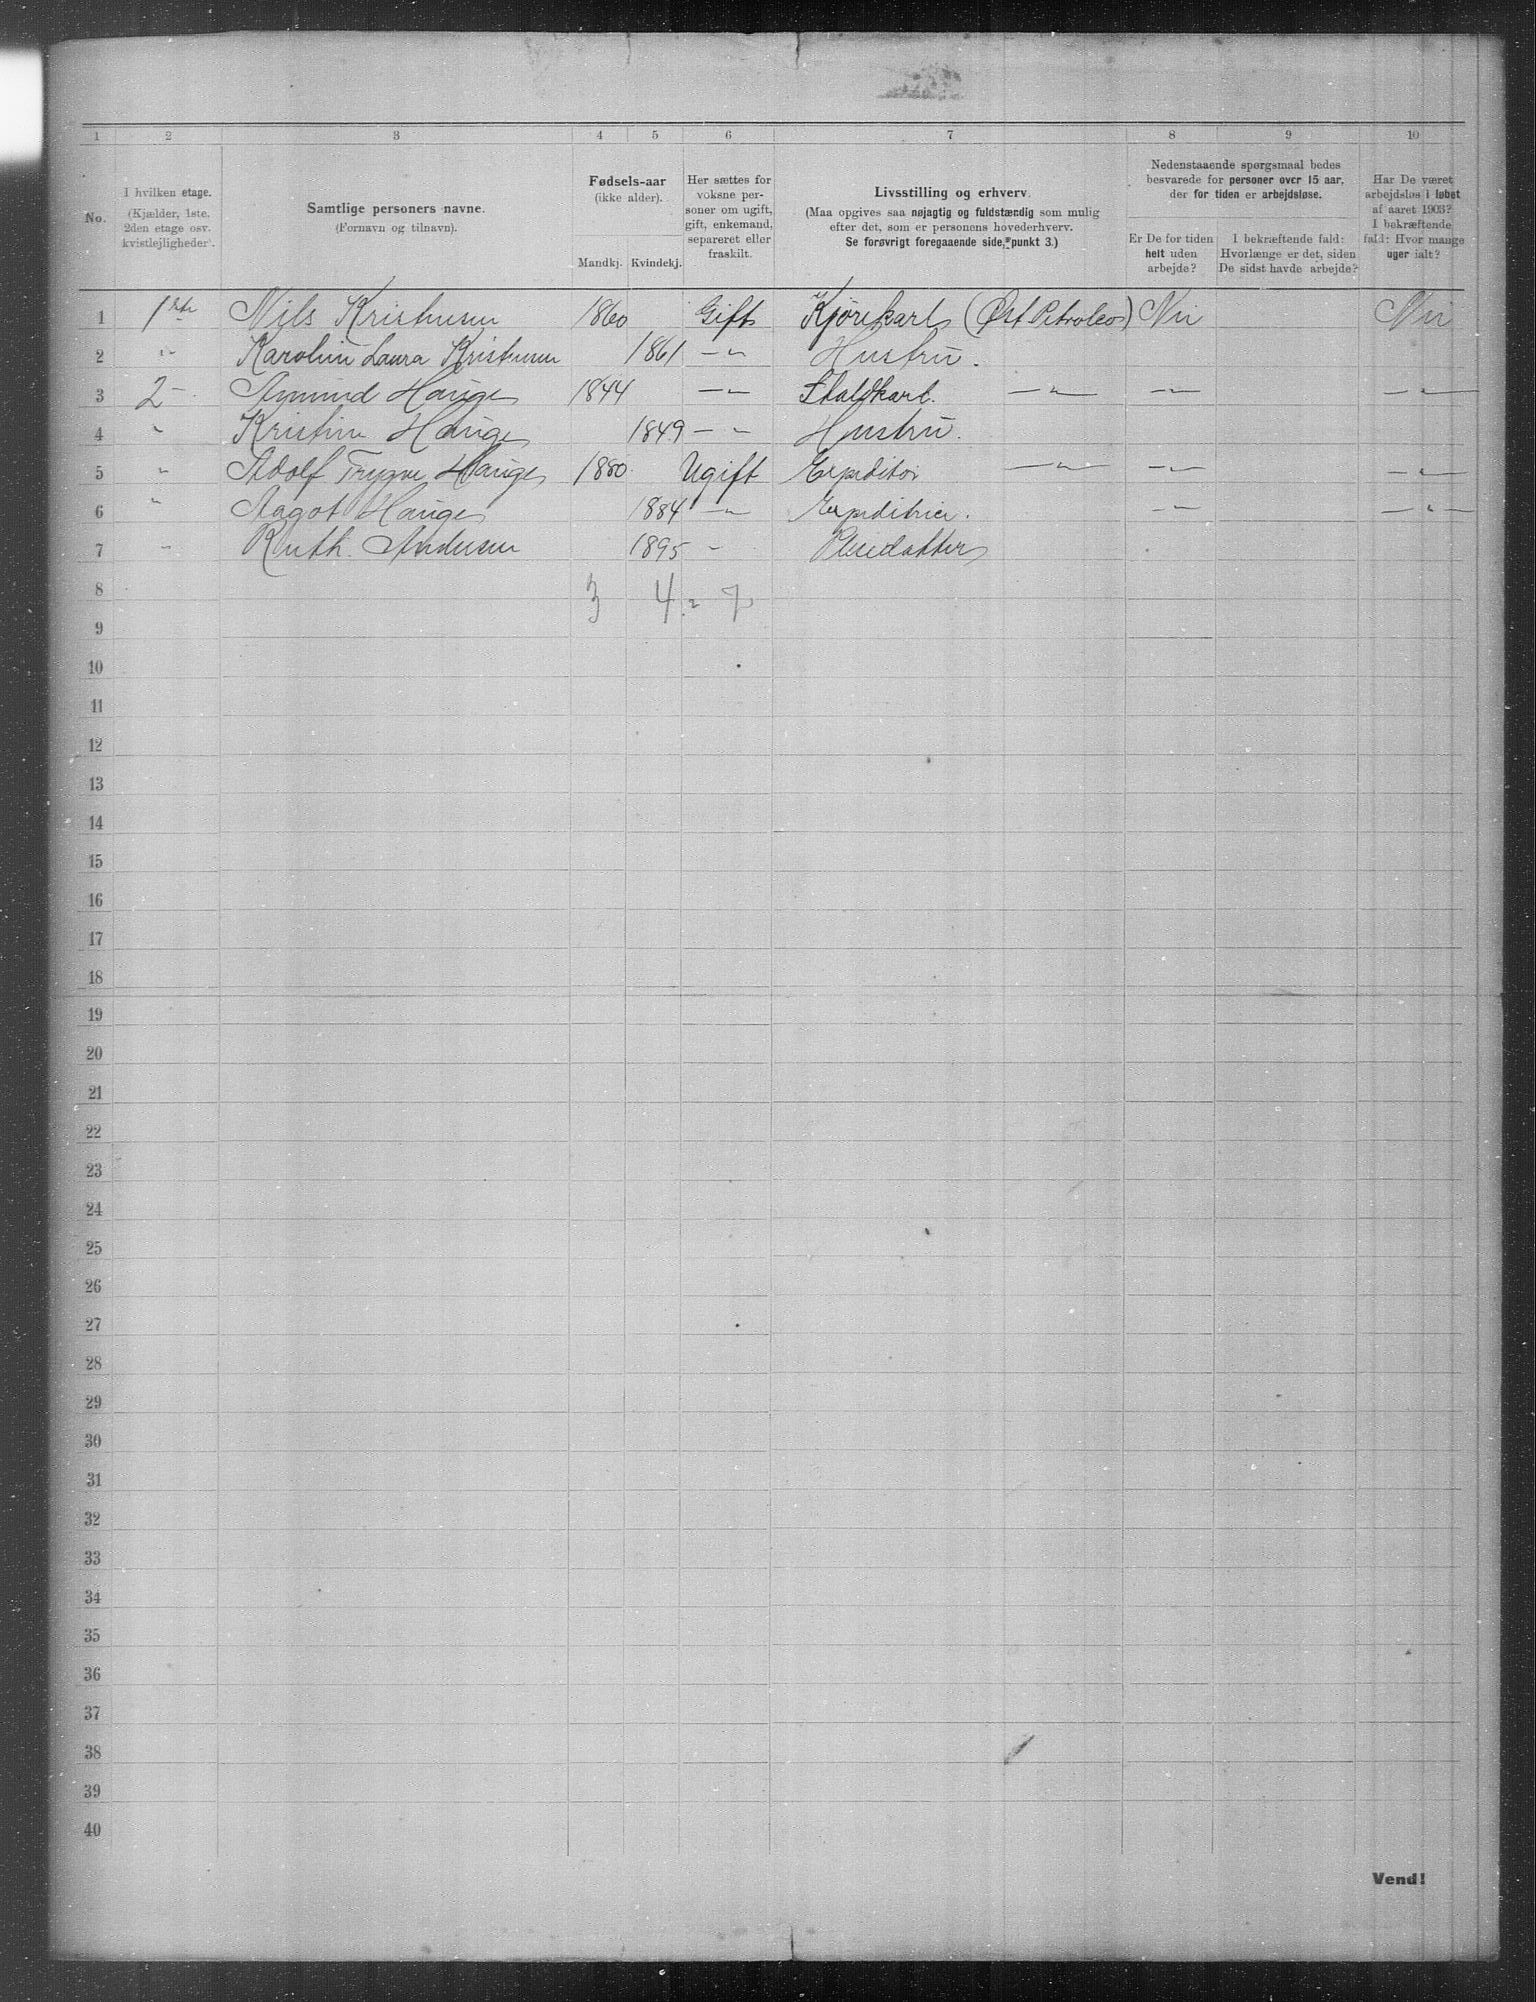 1 2 3 4 5 6 7 8 9 10
No.
I hvilken etage.
(Kjælder, 1ste,
2den etage osv.
kvistlejligheder).
Samtlige personers navne.
(Fornavn og tilnavn).
Fødsels-aar
(ikke alder).
Mandkj. Kvindekj.
Her sættes for
voksne per-
soner om ugift,
gift, enkemand,
separeret eller
fraskilt.
Livsstilling og erhverv.
(Maa opgives saa nøjagtig og fuldstændig som mulig
efter det, som er personens hovederhverv.
Se forøvrigt foregaaende side, punkt 3.)
Nedenstaaende spørgsmaal bedes
besvarede for personer over 15 aar,
der for tiden er arbejdsløse.
Er De for tiden
helt uden
arbejde?
I bekræftende fald:
Hvorlænge er det, siden
De sidst havde arbejde?
Har De været
arbejdsløs i løbet
af aaret 1903?
I bekræftende
fald: Hvor mange
uger ialt?
1 1ste Nils Kristensen 1860 Gift Kjørekarl (Øst Petroleo) Nei Nei
2 -"- Karoline Laura Kristensen 1861 -"- Hustru.
3 2 - Amund Hauge 1844 -"- Staldkarl. -"- -"- -"-
4 " Kristine Hauge 1849 -"- Hustru.
5 " Adolf Trygve Hauge 1880. Ugift Expeditør -"- -"- -"-
6 " Aagot Hauge 1884 -"- Expeditrice. -"- -"-
7 " Ruth Andersen 1895 " Pleiedatter
8 3 4 = 7
9
10
11
12
13
14
15
16
17
18
19
20
21
22
23
24
25
26
27
28
29
30
31
32
33
34
35
36
37
38
39
40
Vend!